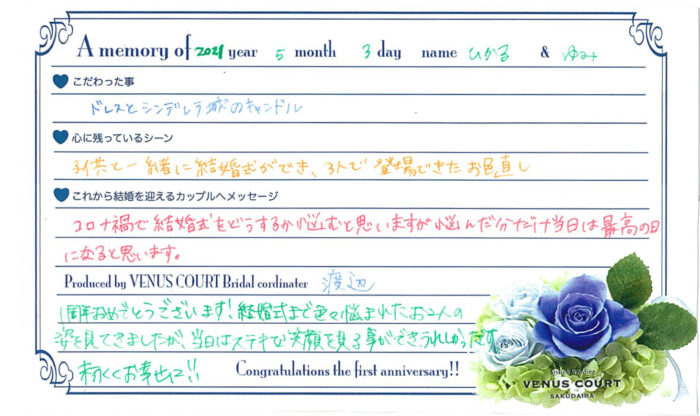 A memory of 2021 year 5 month 3 day name ひかる & ゆみ
こだわった事
ドレスとシンデレラ城のキャンドル
心に残っているシーン
子供と一緒に結婚式ができ、3人で登場できたお色直し
これから結婚を迎えるカップルへメッセージ
コロナ禍で結婚式をどうするか悩むと思いますが悩んだ分だけ当日は最高の日
になると思います。
Produced by VENUS COURT Bridal cordinater 渡辺
1周年おめでとうございます!結婚式まで色々悩まれたお2人の
姿を見てきましたが、当日はステキな笑顔を見る事ができうれしかったです
末永くお幸せに!!
Congratulations the first anniversary!!
VENUS COURT
SAKUDAIRA